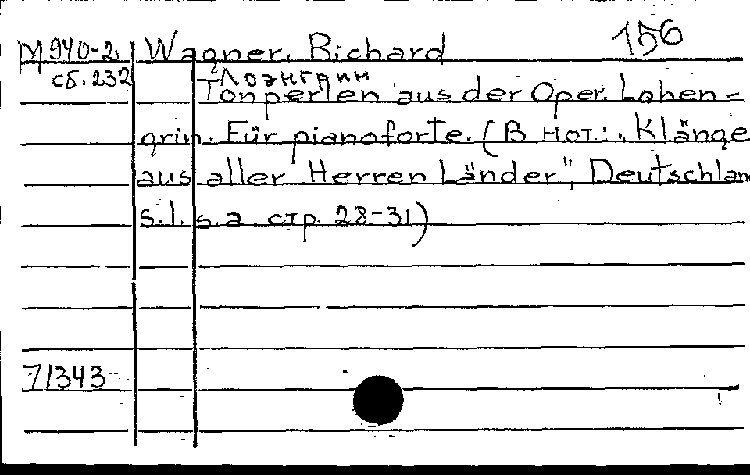 M 940-2 Wagner, Richard 156
сб. 232 Лоэнгрин
Tonperlen aus der Oper. Lohen-
grin. Für pianoforte. (В нот.: „Klänge
aus aller Herren Länder", Deutschlan
s.l. s.a. стр. 28-31)
71343